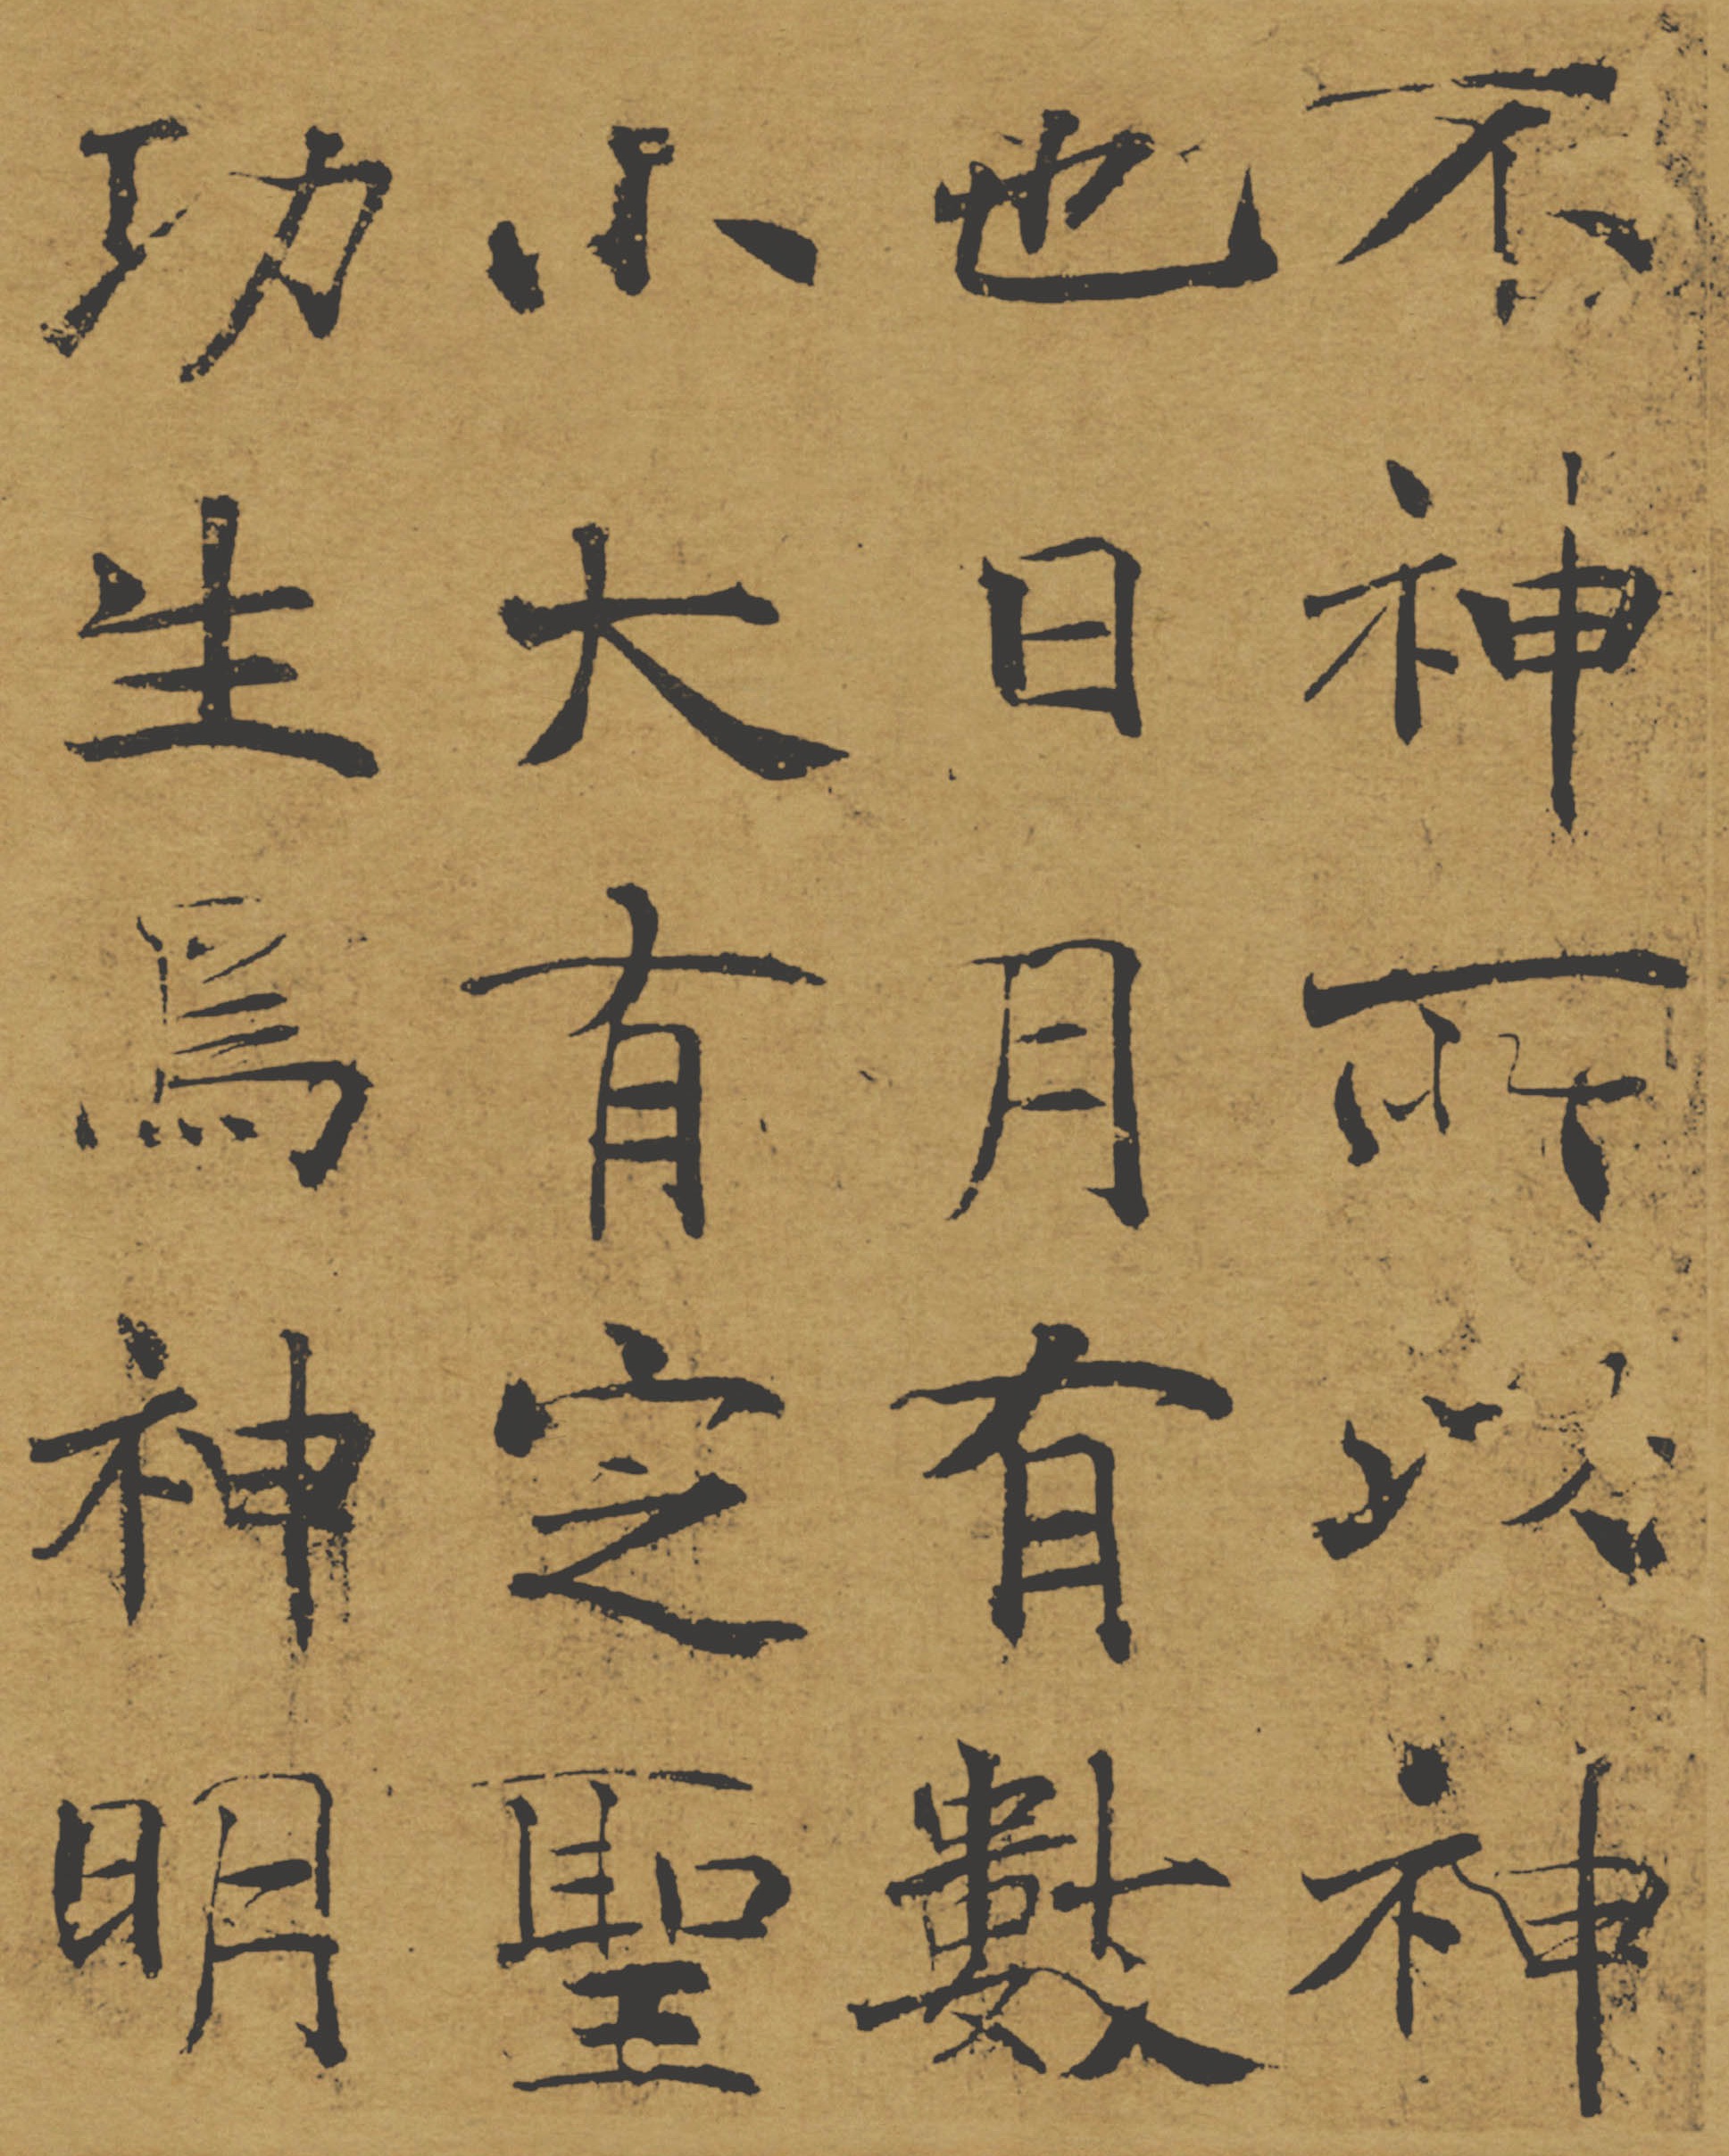 不神所以神
也日月有數
小大有定聖
功生焉神
明